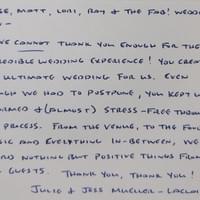 SE, MATT, LORI, RAY & THE FAB! WEDD
-
VE CANNOT THANK YOU ENOUGH FOR THE
REDIBLE WEDDING EXPERIENCE! YOU CREA
ULTIMATE WEDDING FOR US. EVEN
UGH WE HAD TO POSTPONE, YOU KEPT U
ORMED & (ALMOST) STRESS-FREE THROU
PROCESS. FROM THE VENUE, TO THE FOO
SIC AND EVERYTHING IN-BETWEEN, WE
ARD NOTHING BUT POSITIVE THINGS FROM
GUESTS. THANK YOU, THANK YOU!
JULIE & JESS MUELLER-